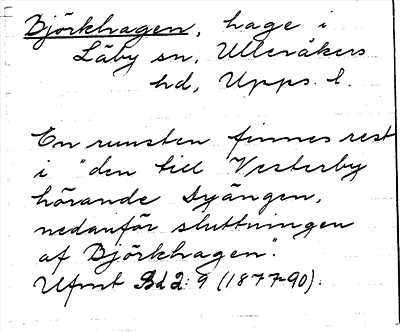 Björkhagen, hage i
Läby sn, Ulleråkers
hd, Upps. l.
En runsten finnes rest
i "den till Vesterby
hörande Dyängen,
nedanför sluttningen
af Björkhagen."
Ufmt Bd 2: 9 (1877-90).